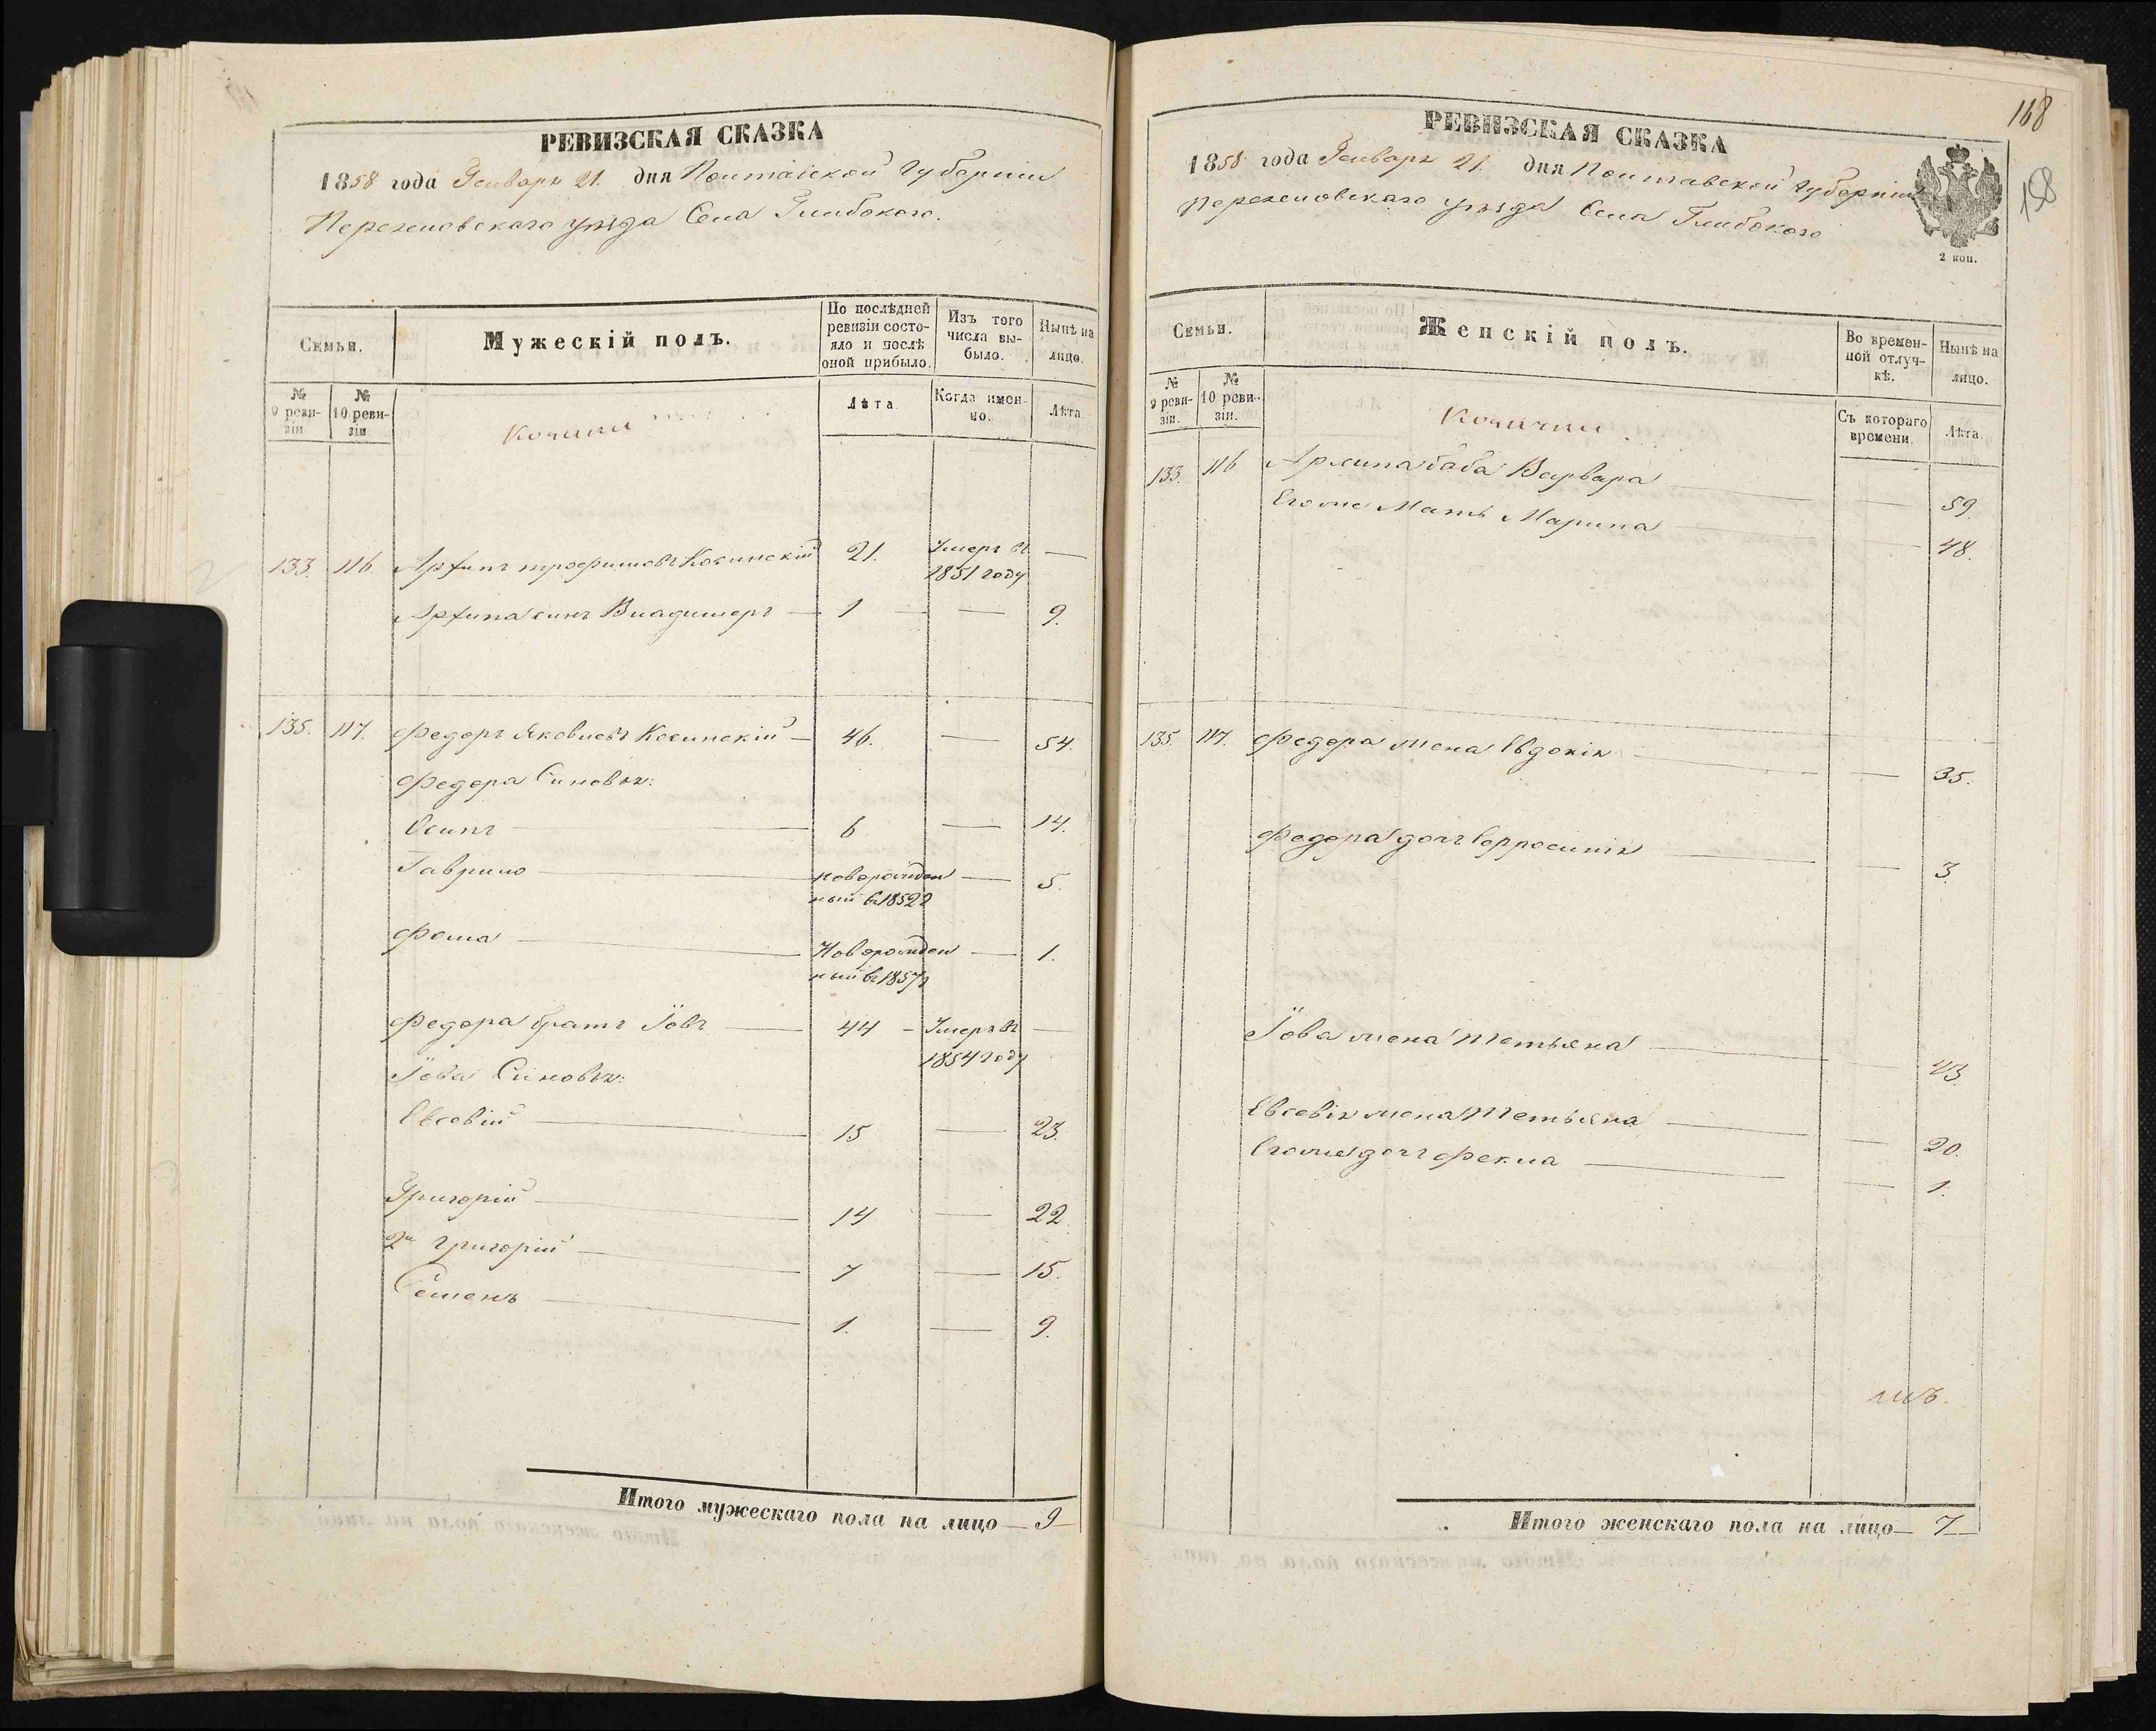 РЕВИЗСКАЯ СКАЗКА
1858 года Генваря 21. дня Полтавской Губерніи
Переяловскаго уезда Села Глибокого.
Семьи.
Мужескій полъ.
По послѣдней ревизіи состояло и послѣ оной прибыло.
Изъ того числа выбыло.
Нынѣ на лицо.
№ 9 ревизіи
№ 10 ревизіи
Лѣта
Когда именно.
Лѣта
133. 116. Архипъ трофимовъ Косинскій 21. Умеръ въ 1851 году —
Архипа синъ Владимеръ — 1 — — 9.
135. 117. Федоръ Яковлевъ Косинскій — 46. — 54.
Федора Синовья:
Осипъ — 6 — 14.
Гаврило — новорожденный въ 1852 г — 5.
Фома — Новорожденный въ 1857 г — 1.
Федора братъ Іовъ — 44 — Умеръ въ 1854 году —
Іова Синовья:
Евсевій — 15 — 23.
Григорій — 14 — 22.
2й Григорій — 7 — 15.
Семенъ — 1. — 9.
Итого мужескаго пола на лицо — 9
168
158
РЕВИЗСКАЯ СКАЗКА
1858 года Генваря 21. дня Полтавской Губерніи
Переяловскаго уезда Села Глибокого
2 коп.
Семьи.
Женскій полъ.
Во временной отлучкѣ.
Нынѣ на лицо.
№ 9 ревизіи.
№ 10 ревизіи.
Съ котораго времени.
Лѣта.
133. 116 Архипа баба Варвара — — 59.
Егоже Мать Марина — — 48.
135. 117. Федора жена Евдокія — — 35.
Федора дочь Ефросинія — — 3.
Іова жена Тетьяна — — 43.
Евсевія жена Тетьяна — — 20.
Егоже дочь Фекла — — 1.
Итого женскаго пола на лицо — 7